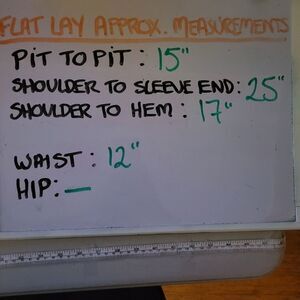 FLAT LAY APPROX. MEASUREMENTS
PIT TO PIT : 15"
SHOULDER TO SLEEVE END: 25"
SHOULDER TO HEM : 17"
WAIST : 12"
HIP: —